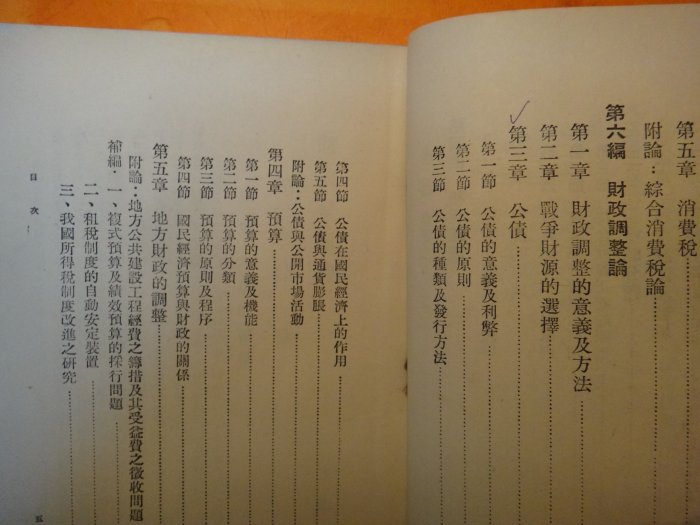 第五章　消費稅
附論：綜合消費稅論
第六編　財政調整論
第一章　財政調整的意義及方法
第二章　戰爭財源的選擇
第三章　公債
第一節　公債的意義及利弊
第二節　公債的原則
第三節　公債的種類及發行方法
第四節　公債在國民經濟上的作用
第五節　公債與通貨膨脹
附論：公債與公開市場活動
第四章　預算
第一節　預算的意義及機能
第二節　預算的分類
第三節　預算的原則及程序
第四節　國民經濟預算與財政的關係
第五章　地方財政的調整
附論：地方公共建設工程經費之籌措及其受益費之徵收問題
補編．一、複式預算及績效預算的採行問題
二、租稅制度的自動安定裝置
三、我國所得稅制度改進之研究
目次
五